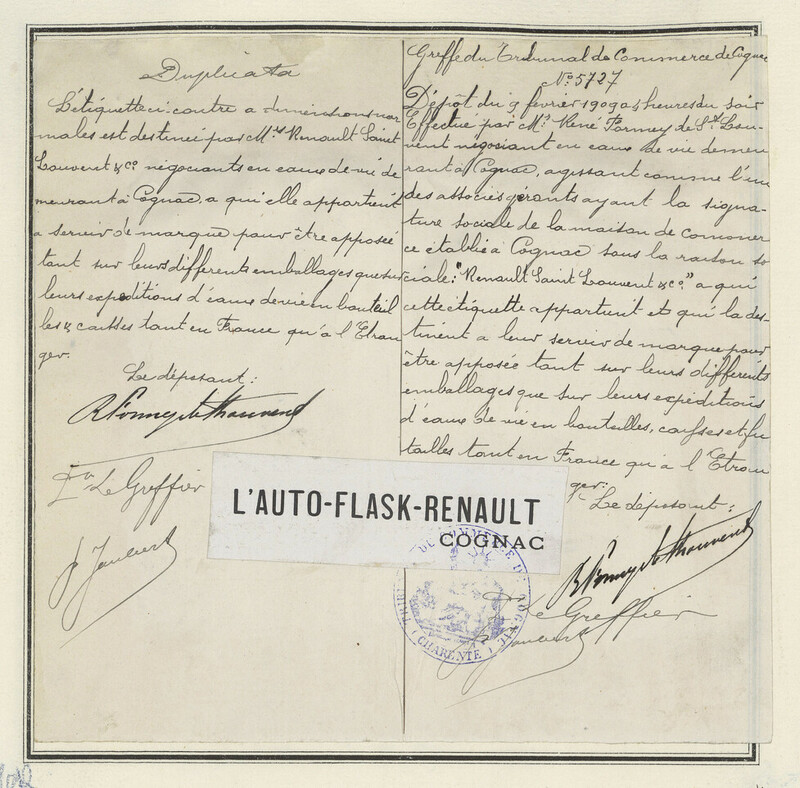 Duplicata
L'étiquette ci-contre a dimensions nor
males est destinée par Mrs Renault Saint
Louvent & Co négociants en eaux-de-vie de
meurant à Cognac, a qui elle appartient
a servir de marque pour être apposée
tant sur leurs differents emballages que sur
leurs expeditions d'eaux de vie en bouteil
les & caisses tant en France qu'à l'Etran
ger.
Le déposant:
Pr Le Greffier
Greffe du Tribunal de Commerce de Cognac
No 5727
Dépôt du 9 février 1909 a 5 heures du soir
Effectué par Mr René Formey de St Lou-
vent négociant en eaux de vie demeu
rant à Cognac, agissant comme l'un
des associés gérants ayant la signa-
ture sociale de la maison de commer
ce établie à Cognac sous la raison so
ciale: "Renault Saint Louvent & Co" a qui
cette étiquette appartient et qui la des-
tinent a leur servir de marque pour
être apposée tant sur leurs différents
emballages que sur leurs expéditions
d'eaux de vie en bouteilles, caisses et fu
tailles tant en France qu'à l'Etran
ger.
Le déposant:
Le Greffier
L'AUTO-FLASK-RENAULT
COGNAC
COMMERCE DE COGNAC
CHARENTE